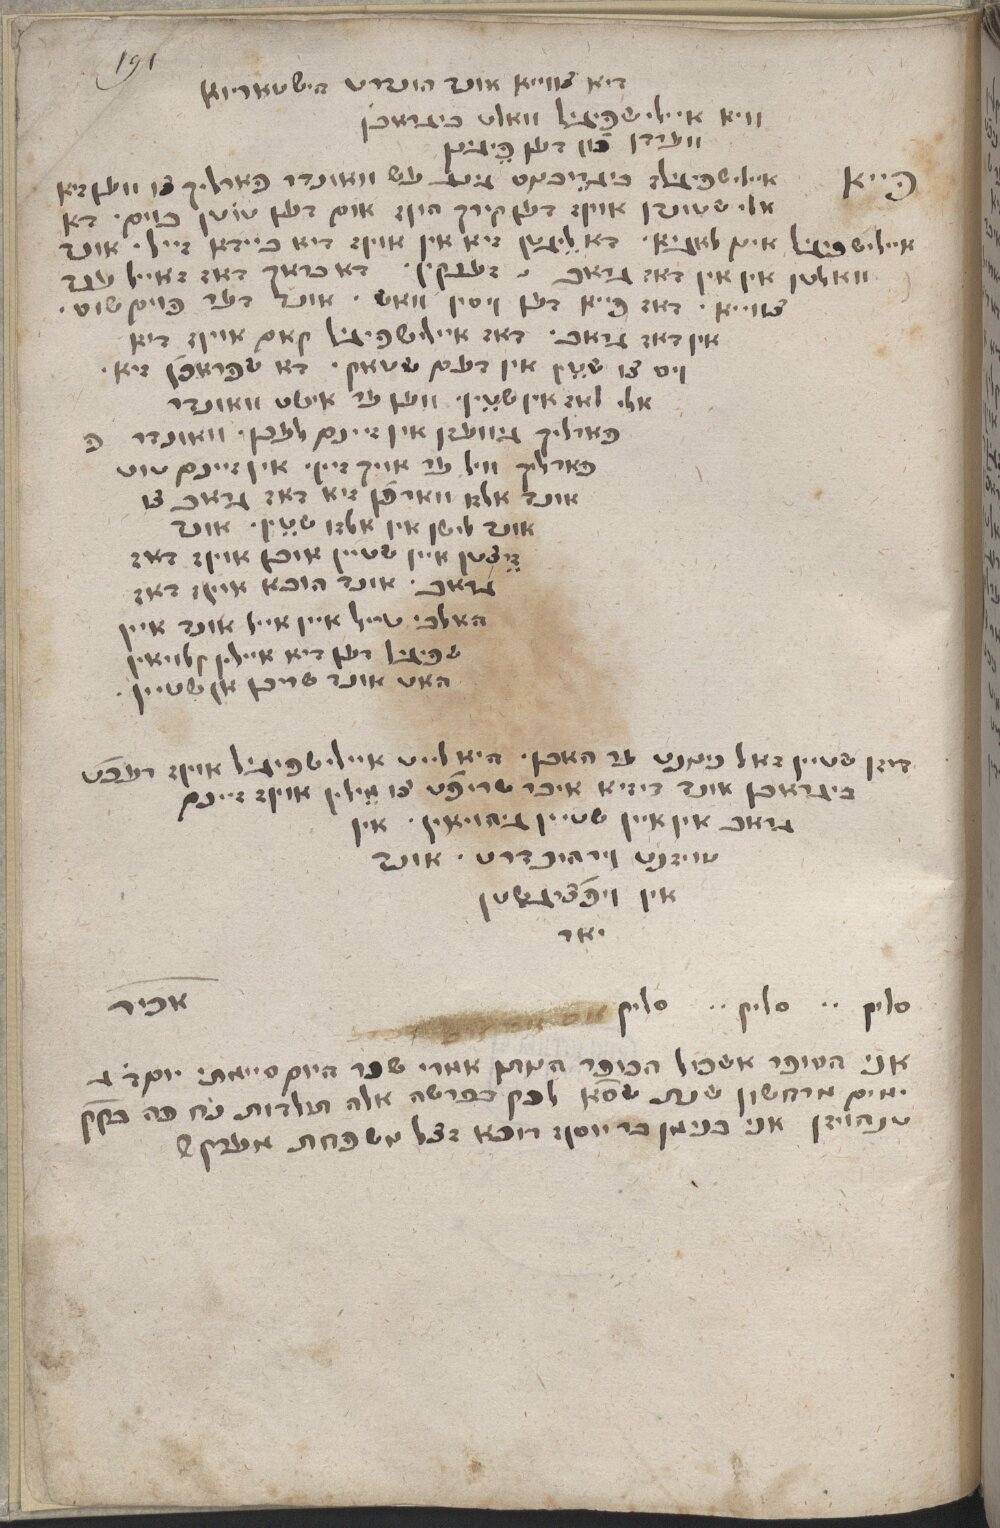 191
דיא צווייא אונד הונדרט הישטאריוא
וויא איילישפיגיל וואלט ביגראבן
ווערדן פון דען פיגינן
פייא איילישפיגילז ביגריבטט גינג עש וואונדר פארליך צו ווען דיא
אלי שטונדן אויף דען קירך הוף אום דען טוטן בוים · דא
אייליש פיגיל אינן לאגיא · דא ליגטן זיא אין אויף דיא ביידא זייל · אונד
וואלטן אין אין דאז גראב זענקין · דא בראך דאז זאייל ענד
צווייא · דאז פייא דען ויסין וואש · אונד דער בוים שוס ·
אין דאז גראב · דאז אייילשפיגיל קאם אויף דיא
ויס צו שטין אין דעם שטאק · דא שפראכן זיא ·
אלי לאז אין שטין · ווען ער אישט וואונדר
פארליך גיוועזן אין זיינם לעבן · וואונדר פ
פארליך וויל ער אויך זיין · אין זיינם טוט
אונד אלזו ווארפן זיא דאז גראב צו
אונד ליסן אין אלזו שטין · אונד
זיצטן איין שטיין אובן אויף דאז
גראב · אונד הובא אויף דאז
האלבי טייל איין אייל אונד איין
שפיגיל דען דיא איילין קלויאין
האט אונד שריבן אן שטיין ·
דיזן שטיין זאל נימנט ער האבן · היא לייט אייליש פיגיל אויף רעכט
ביגראבן אונד דיזיא איבר שריפט צו מילין אויף זיינם
גראב אין איין שטיין גיהויאין · אין
טויזנט וירהינדרט · אונד
אין ויפציגשטן
יאר
סליק ·· סליק ·· סליק אכיר
אני הסופר אשכול הכופר המתן אמרי שפר היום סיימתי יום ד ג
ימים מרחשון שנת שס״א לפק בפרשה אלה תולדות נח פה בקק
טנהויזן אני בנימן בר יוסף רופא זצל משפחת מערקש